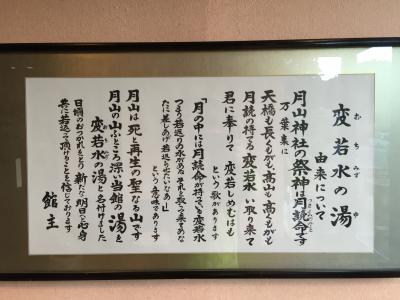 変若水の湯
おちみずのゆ
由来について
月山神社の祭神は月読命です
つきよみのみこと
万葉集に
天橋も長くもがも高山も高くもがも
月読の持てる変若水い取り来て
君に奉りて変若しめむはも
という歌があります
「月の中には月読命が持っている変若水
つまり若返りの水がある それを取って来てあな
たに差しあげ若返らせたいなあ」
という意味であります
月山は死と再生の聖なる山です
月山の山ふところ深い当館の湯を
変若水の湯と名付けました
日頃のおつかれをとり新たな明日へ心身
共に若返って頂けることを信じております
館主